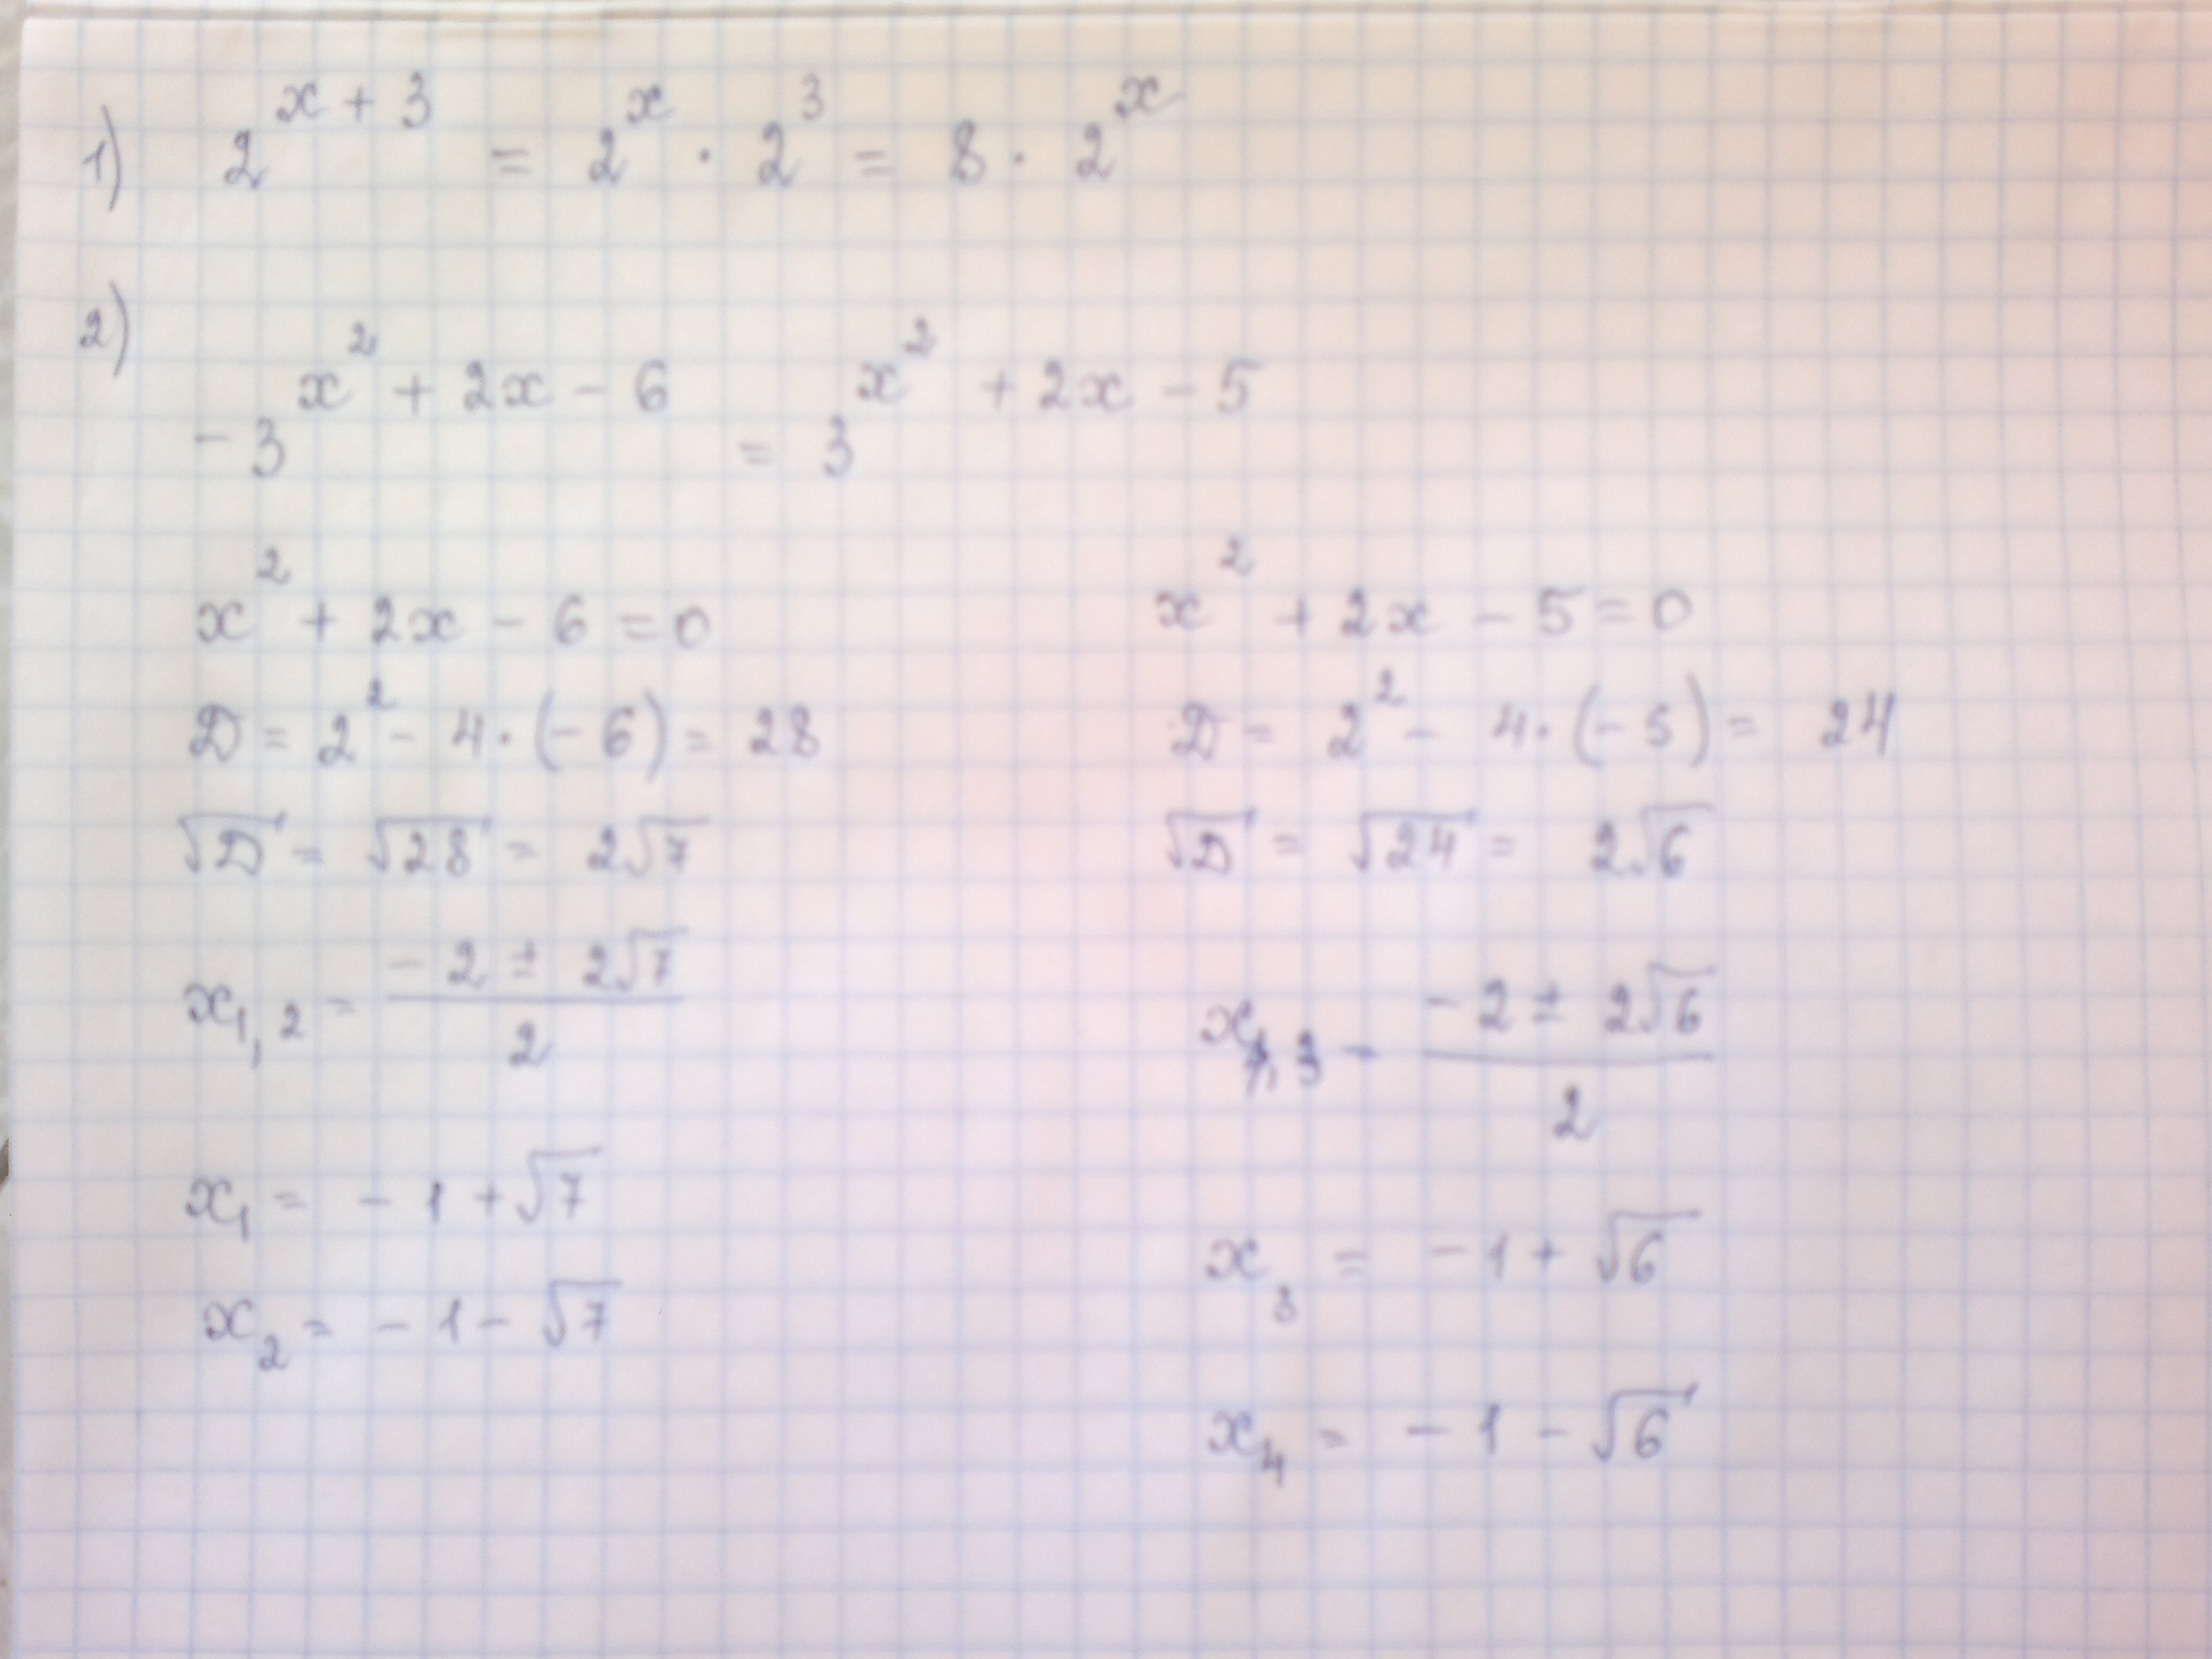 1) 2^{x+3} = 2^x · 2^3 = 8 · 2^x
2) -3^{x^2+2x-6} = 3^{x^2+2x-5}
x^2 + 2x - 6 = 0
D = 2^2 - 4 · (-6) = 28
√D = √28 = 2√7
x_{1,2} = \frac{-2 ± 2√7}{2}
x_1 = -1 + √7
x_2 = -1 - √7
x^2 + 2x - 5 = 0
D = 2^2 - 4 · (-5) = 24
√D = √24 = 2√6
x = \frac{-2 ± 2√6}{2}
x_3 = -1 + √6
x_4 = -1 - √6